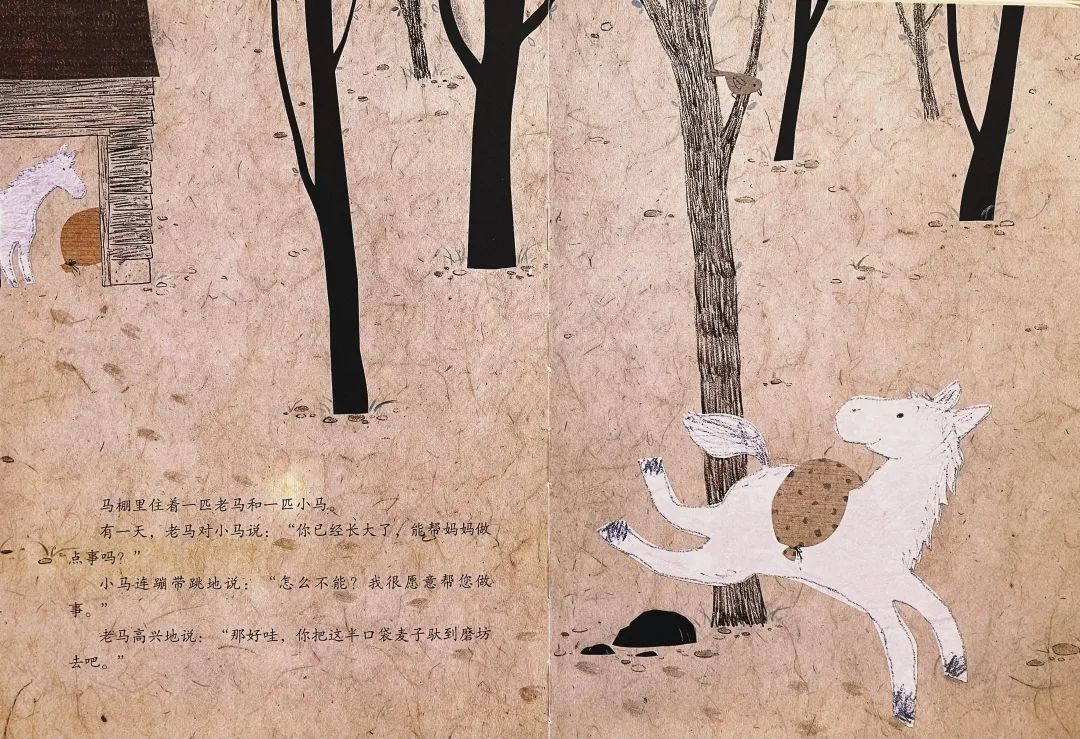 马棚里住着一匹老马和一匹小马。
有一天，老马对小马说：“你已经长大了，能帮妈妈做
点事吗？”
小马连蹦带跳地说：“怎么不能？我很愿意帮您做
事。”
老马高兴地说：“那好哇，你把这半口袋麦子驮到磨坊
去吧。”